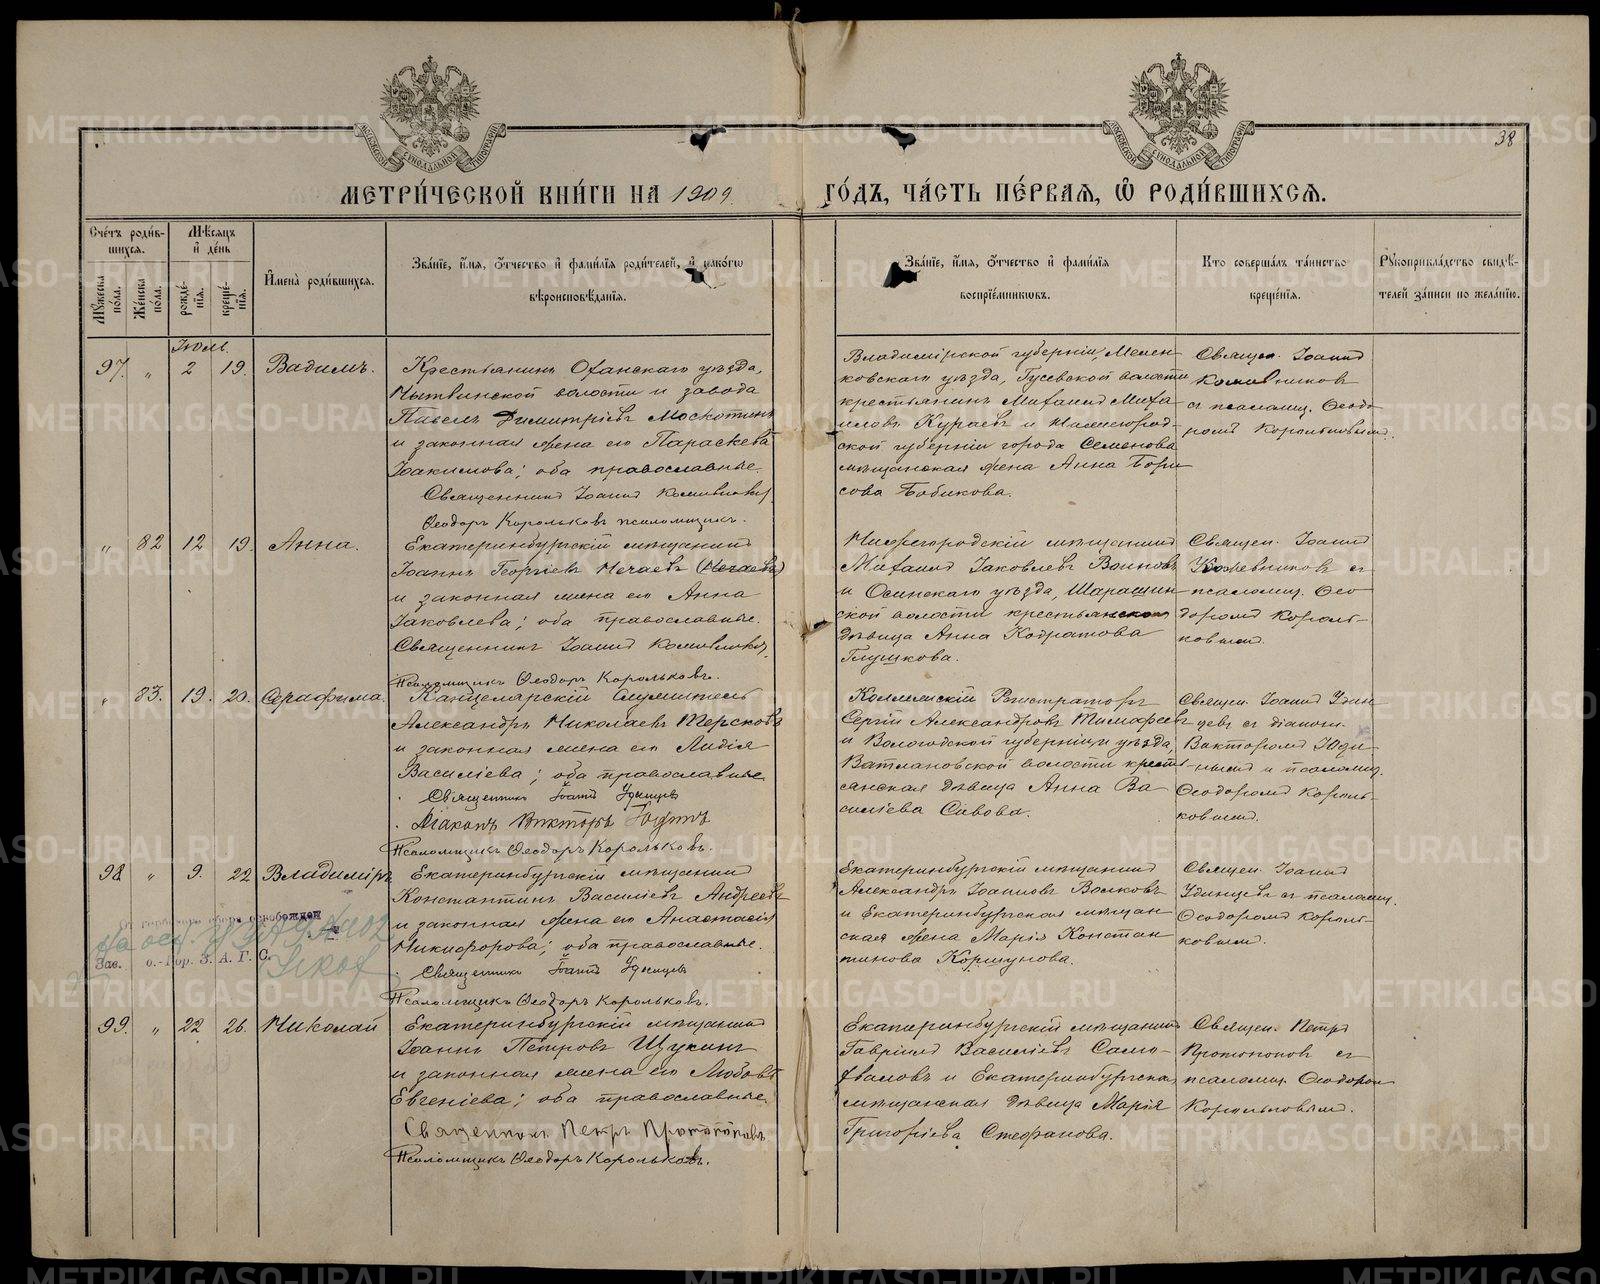 38
МЕТРИ́ЧЕСКОЙ КНИ́ГИ НА 1909 ГО́ДЪ, ЧА́СТЬ ПЕ́РВАЯ, Ѡ РОДИ́ВШИХСЯ.
Сче́тъ роди́вшихся.
Му́жеска по́ла.
Же́нска по́ла.
Мѣ́сяцъ и҆ де́нь
рожде́нїя.
креще́нїя.
И҆мена̀ роди́вшихся.
Зва́нїе, и҆́мя, ѻ҆́тчество и҆ фами́лїя роди́телей, и҆ како́гѡ
вѣроисповѣ́данїя.
Зва́нїе, и҆́мя, ѻ҆́тчество и҆ фами́лїя
воспрїе́мникѡвъ.
Кто соверша́лъ та́инство
креще́нїя.
Рꙋкоприкла́дство свидѣ́телей за́писи по жела́нїю.
Іюль.
97. „ 2 19. Вадимъ.
Крестьянинъ Оханскаго уѣзда,
Нытвинской волости и завода
Павелъ Димитріевъ Москотинъ
и законная жена его Параскева
Іоакимова; оба православные.
Священникъ Іоаннъ Кожевниковъ
Ѳеодоръ Корольковъ псаломщикъ.
Владимірской губерніи, Меленковскаго уѣзда, Гусевской волости
крестьянинъ Михаилъ Михаиловъ Кураевъ и Нижегородской губерніи города Семенова
мѣщанская жена Анна Борисова Бобикова.
Священ. Іоаннъ
Кожевников
съ псаломщ. Ѳеодоромъ Корольковымъ.
„ 82 12 19. Анна.
Екатеринбургскій мѣщанинъ
Іоаннъ Георгіевъ Нечаевъ (Нечаевъ)
и законная жена его Анна
Іаковлева; оба православные.
Священникъ Іоаннъ Кожевниковъ
Псаломщикъ Ѳеодоръ Корольковъ.
Нижегородскій мѣщанинъ
Михаилъ Іаковлевъ Воиновъ
и Осинскаго уѣзда,
ской волости крестьянская
дѣвица Анна Кодратова
Глушкова.
Священ. Іоаннъ
Кожевников съ
псаломщ. Ѳеодоромъ Корольковымъ.
„ 83. 19. 20. Серафима.
Канцелярскій служитель
Александръ Николаевъ Терсковъ
и законная жена его Лидія
Василіева; оба православные
Священникъ Іоаннъ Удинцевъ
Діаконъ Викторъ Юдинъ
Псаломщикъ Ѳеодоръ Корольковъ.
Коллежскій Регистраторъ
Сергій Александровъ Тимофеевъ
и Вологодской губерніи и уѣзда,
Ватлановской волости крестьянская дѣвица Анна Василіева Савова.
Священ. Іоаннъ Удинцевъ съ діакон.
Викторомъ Юдинымъ и псаломщ.
Ѳеодоромъ Корольковымъ.
98 „ 9. 22 Владиміръ
Екатеринбургскій мѣщанинъ
Константинъ Василіевъ Андреевъ
и законная жена его Анастасія
Никифорова; оба православные.
Священникъ Іоаннъ Удинцевъ
Псаломщикъ Ѳеодоръ Корольковъ.
Екатеринбургскій мѣщанинъ
Александръ Іоанновъ Волковъ
и Екатеринбургская мѣщанская жена Марія Константинова Коршунова.
Священ. Іоаннъ
Удинцевъ съ псаломщ.
Ѳеодоромъ Корольковымъ.
От гербового сбора освобожден
Зав. о.-Гор. З. А. Г. С.
99. „ 22 26. Николай
Екатеринбургскій мѣщанинъ
Іоаннъ Петровъ Щукинъ
и законная жена его Любовь
Евгеніева; оба православные.
Священникъ Петръ Протопоповъ
Псаломщикъ Ѳеодоръ Корольковъ.
Екатеринбургскій мѣщанинъ
Гавріилъ Василіевъ Самохваловъ и Екатеринбургская
мѣщанская дѣвица Марія
Григоріева Стефанова.
Священ. Петръ
Протопопов съ
псаломщ. Ѳеодоромъ
Корольковымъ.
METRIKI.GASO-URAL.RU